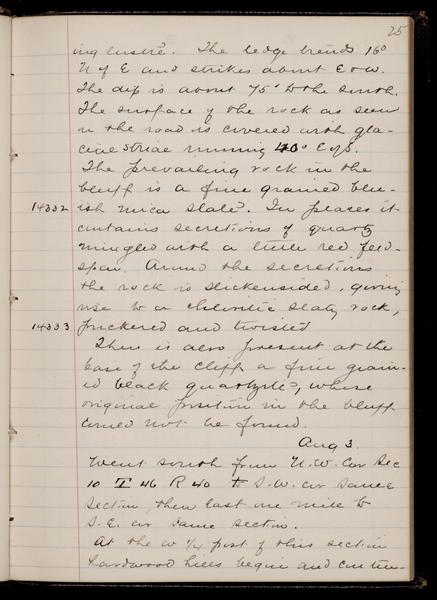 25
ing lustre. The ledge trends 16°
N of E and strikes about E & W.
The dip is about 75° to the south.
The surface of the rock as seen
in the road is covered with gla-
cial striae running 40° E of S.
The prevailing rock in the
bluff is a fine grained blu-
14332 ish mica slate. In places it
contains secretions of quartz
mingled with a little red feld-
spar. Around the secretions
the rock is slickensided, giving
rise to a chloritic slaty rock,
14333 puckered and twisted
There is also present at the
base of the cliff a fine grain-
ed black quartzite, whose
original position in the bluff
could not be found.
Aug 3.
Went south from N.W. Cor Sec
10 T 46 R 40 to S.W. cor same
section, then east one mile to
S.E. cor same section.
At the W 1/4 post of this section
hardwood hills begin and contin-